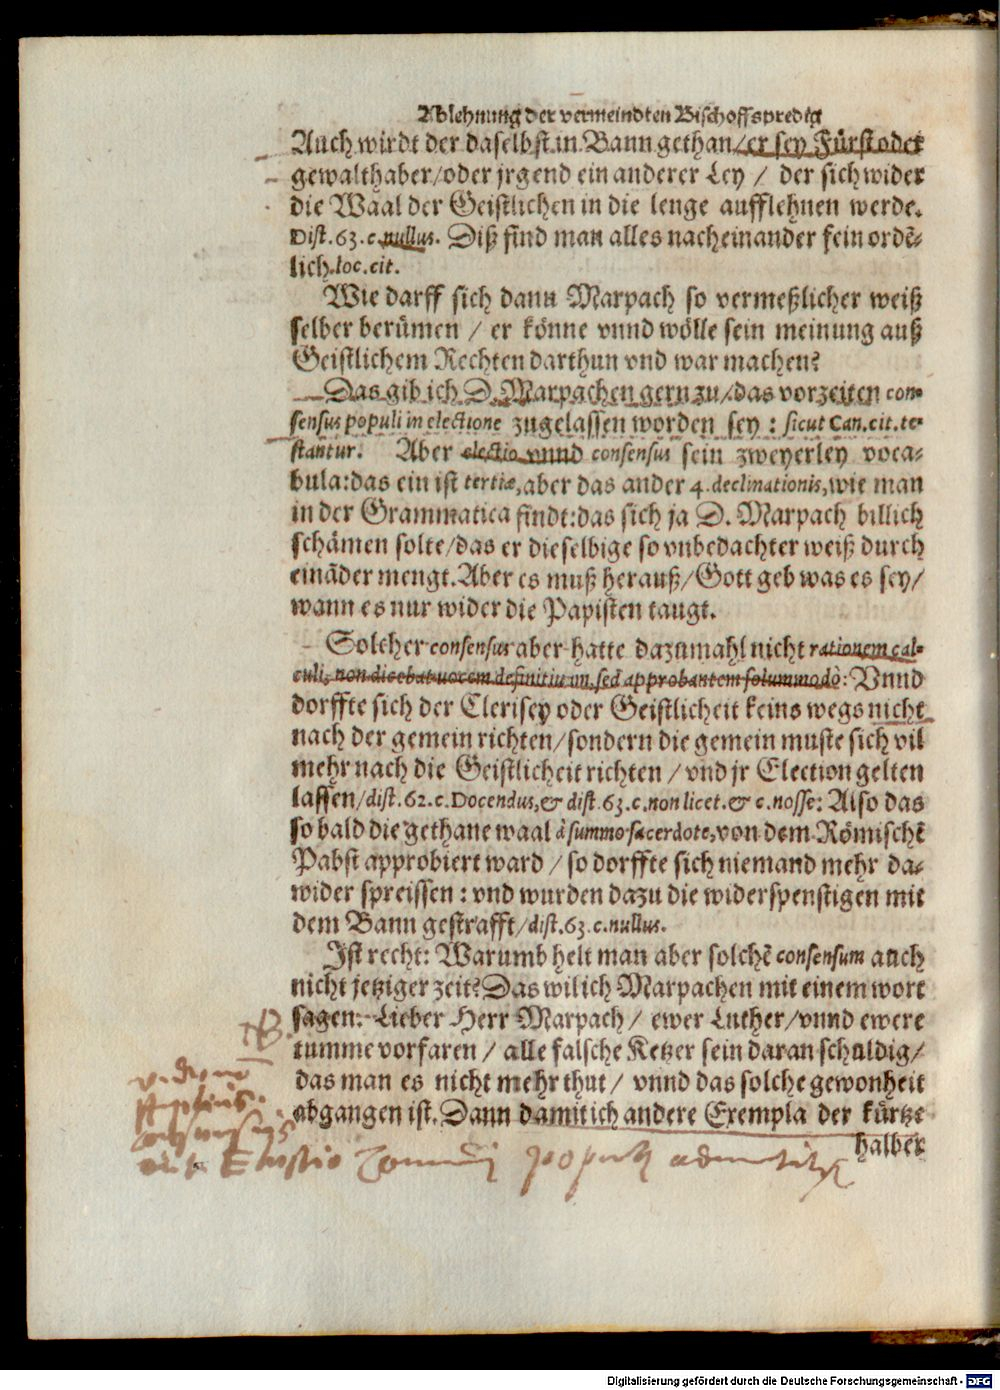 Ablehnung der vermeindten Bischoffspredig
Auch wirdt der daselbst in Bann gethan/er sey Fürst oder
gewalthaber/oder jrgend ein anderer Ley / der sich wider
die Waal der Geistlichen in die lenge aufflehnen werde.
Dist. 63. c. nullus. Diß find man alles nacheinander fein ordē-
lich loc. cit.
Wie darff sich dann Marpach so vermeßlicher weiß
selber berümen / er könne vnnd wölle sein meinung auß
Geistlichem Rechten darthun vnd war machen?
Das gib ich D. Marpachen gern zu/das vorzeiten con-
sensus populi in electione zugelassen worden sey : sicut Can. cit. te-
stantur. Aber electio vnnd consensus sein zweyerley voca-
bula:das ein ist tertiæ,aber das ander 4. declinationis,wie man
in der Grammatica findt:das sich ja D. Marpach billich
schämen solte/das er dieselbige so vnbedachter weiß durch
eināder mengt. Aber es muß herauß/Gott geb was es sey/
wann es nur wider die Papisten taugt.
Solcher consensus aber hatte dazumahl nicht rationem cal-
culi, non dicebat uocem definitiuam, sed approbantem solummodò: Vnnd
dorffte sich der Clerisey oder Geistlicheit keins wegs nicht
nach der gemein richten/sondern die gemein muste sich vil
mehr nach die Geistlicheit richten / vnd jr Election gelten
lassen/dist. 62. c. Docendus,& dist. 63. c. non licet. & c. nosse: Also das
so bald die gethane waal à summo sacerdote,von dem Römischē
Pabst approbiert ward / so dorffte sich niemand mehr da-
wider spreissen : vnd wurden dazu die widerspenstigen mit
dem Bann gestrafft/dist. 63. c. nullus.
Ist recht: Warumb helt man aber solchē consensum auch
nicht jetziger zeit? Das wil ich Marpachen mit einem wort
sagen: Lieber Herr Marpach / ewer Luther/vnnd ewere
tumme vorfaren / alle falsche Ketzer sein daran schuldig/
das man es nicht mehr thut / vnnd das solche gewonheit
abgangen ist. Dann damit ich andere Exempla der kürtze
halber
NB.
populi
Digitalisierung gefördert durch die Deutsche Forschungsgemeinschaft - DFG